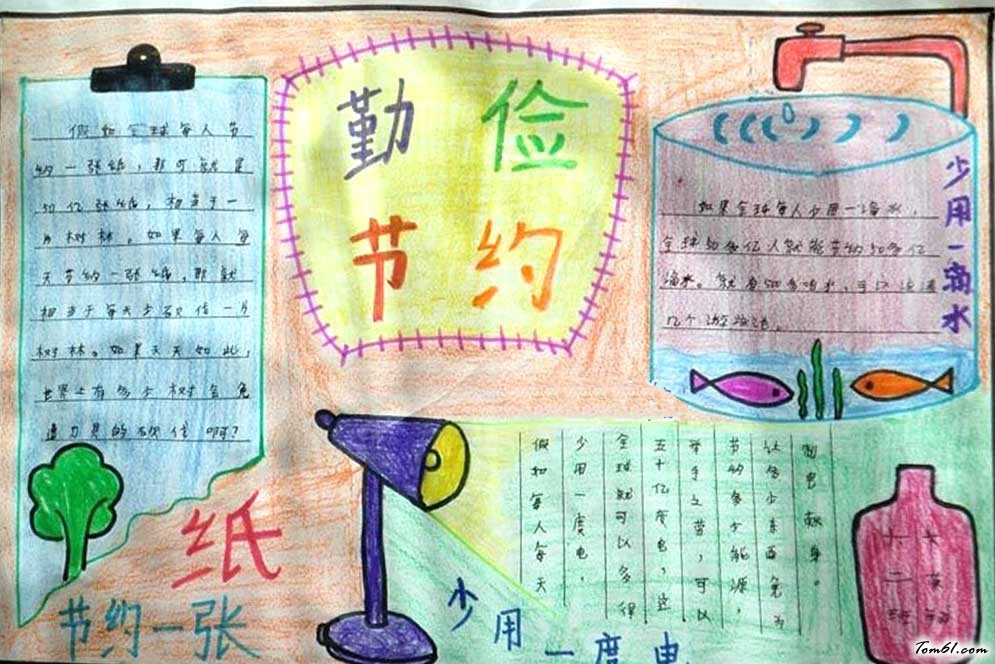 勤俭
节约
假如全球每人节
约一张纸，那可就是
50亿张纸，相当于一
片树林。如果每人每
天节约一张纸，那就
相当于每天少砍伐一片
树林。如果天天如此，
世界上有多少树会免
遭刀具的砍伐啊？
节约一张
纸
少用一滴水
如果全球每人少用一滴水，
全球50多亿人就能节约50多亿
滴水。
几个游泳池。
假如每人每天
少用一度电，
全球就可以多得
五十亿度电，这
举手之劳，可以
节约多少能源，
让多少东西免为
制电献身。
少用一度电
六六
二
班
Tom61.com